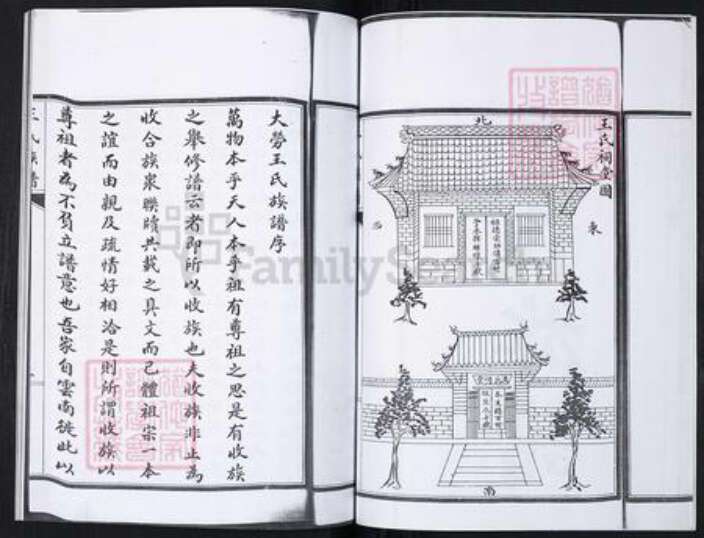 王氏祠堂圖
北
東
西
南
大勞王氏族譜序
萬物本乎天人本乎祖有尊祖之思是有收族
之舉修譜云者即所以收族也夫收族非止為
收合族眾聯牘共載之具文而已體祖宗一本
之誼而由親及疏情好相洽是則所謂收族以
尊祖者為不負立譜意也吾家自雲南徙此以
王氏族譜
FamilySearch